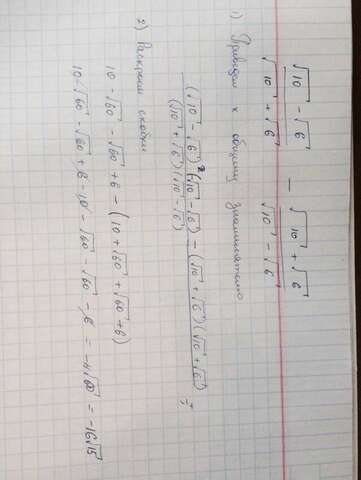 √10 - √6 / √10 + √6 — √10 + √6 / √10 - √6
1) Приводим к общему знаменателю
(√10 - √6)(√10 - √6) - (√10 + √6)(√10 + √6) / (√10 + √6)(√10 - √6) =
2) Раскроем скобки
10 - √60 - √60 + 6 - (10 + √60 + √60 + 6)
10 - √60 - √60 + 6 - 10 - √60 - √60 - 6 = -4√60 = -16√15